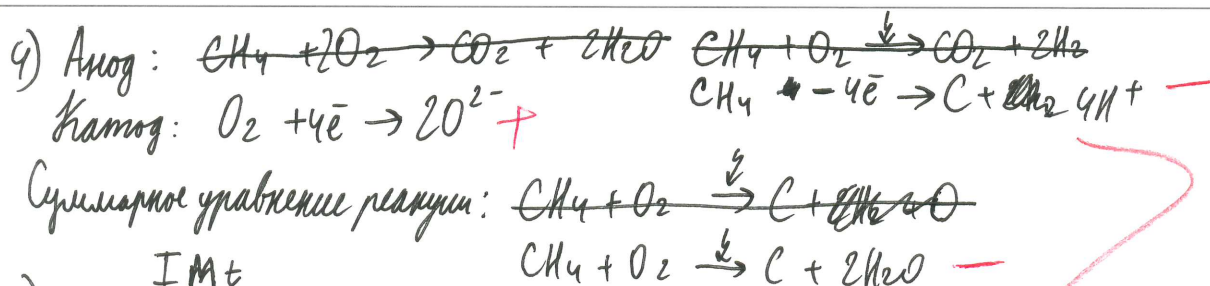 4) Анод: CH4 + 2O2 → CO2 + 2H2O CH4 + O2 → CO2 + 2H2
CH4 - 4ē → C + 4H+ —
Катод: O2 + 4ē → 2O2- +
Суммарное уравнение реакции: CH4 + O2 → C +
CH4 + O2 → C + 2H2O —
I M t